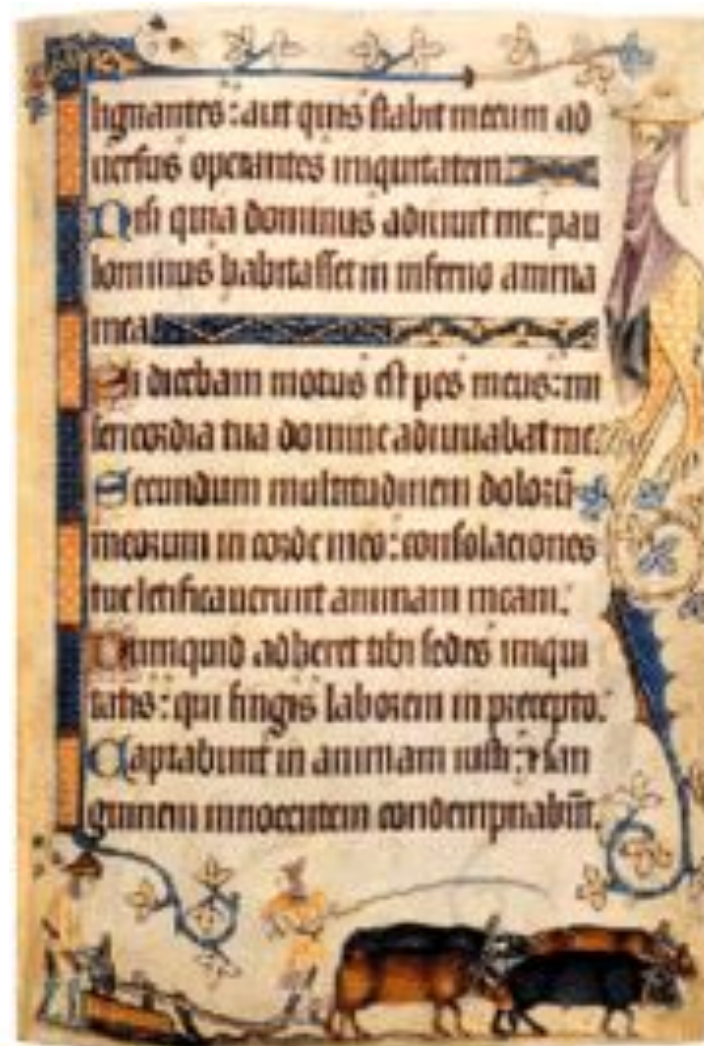 lignantes: aut quis stabit mecum ad
uersus operantes iniquitatem
Nisi quia dominus adiuuit me: pau
lominus habitasset in inferno anima
mea.
Si dicebam motus est pes meus: mi
sericordia tua domine adiuuabat me.
Secundum multitudinem dolorū
meorum in corde meo: consolaciones
tue letificauerunt animam meam.
Numquid adheret tibi sedes iniqui
tatis: qui fingis laborem in precepto.
Captabunt in animam iusti: & san
guinem innocentem condempnabūt.